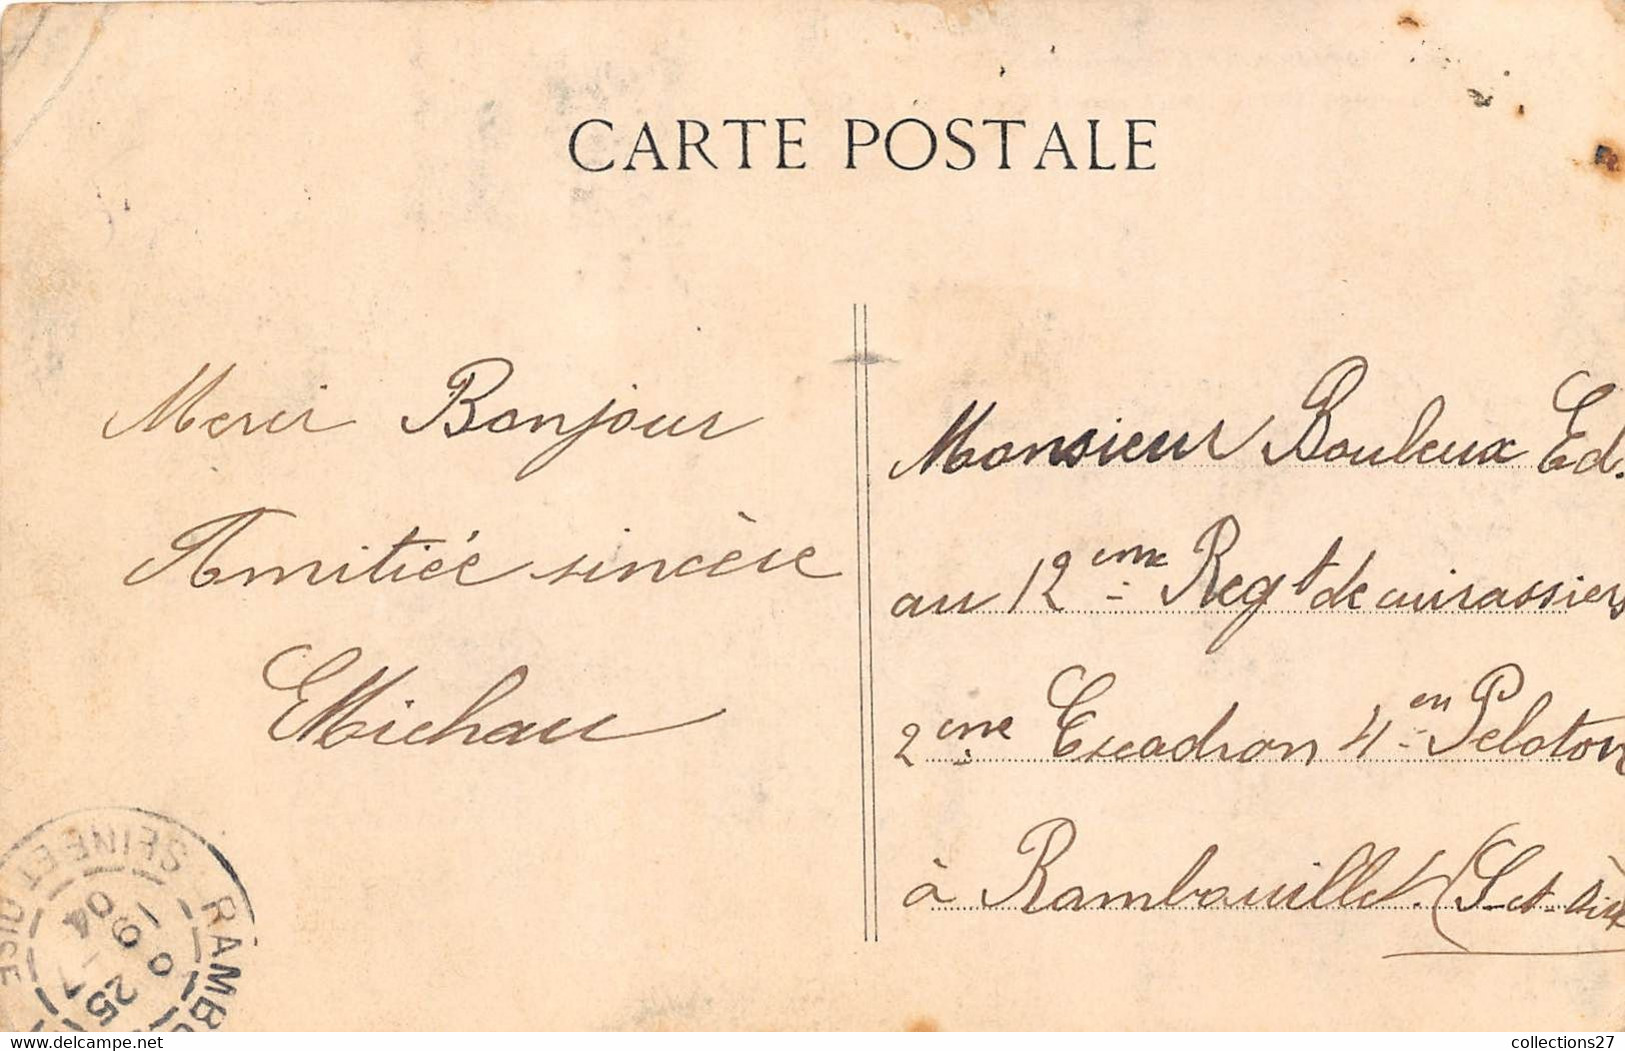 CARTE POSTALE
Merci Bonjour
Amitiée sincère
EMichau
Monsieur Bouleux Ed.
au 12ème Regt de cuirassiers
2ème Escadron 4en Peloton
à Rambouillet. (S-et-Oise
RAMBO
SEINE ET OISE
25 -1
04
collections27